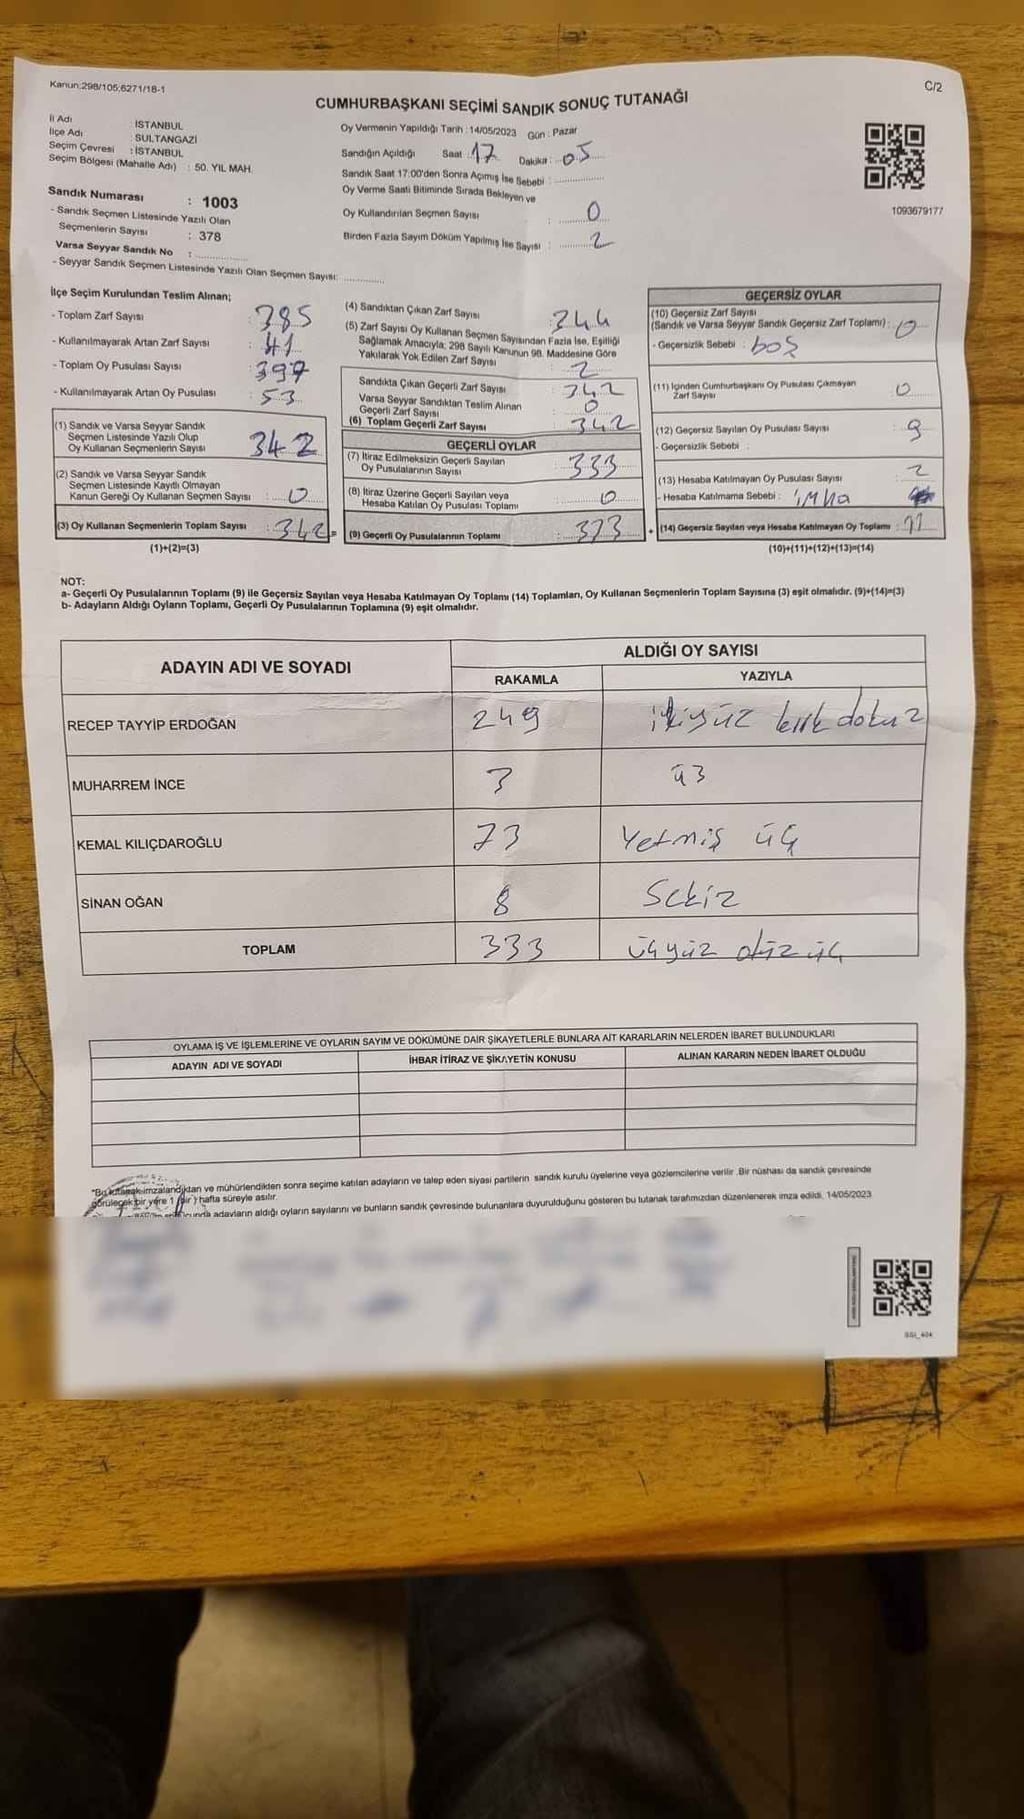 Kanun:298/105;6271/18-1
C/2
CUMHURBAŞKANI SEÇİMİ SANDIK SONUÇ TUTANAĞI
İl Adı : İSTANBUL
İlçe Adı : SULTANGAZİ
Seçim Çevresi : İSTANBUL
Seçim Bölgesi (Mahalle Adı) : 50. YIL MAH.
Sandık Numarası : 1003
- Sandık Seçmen Listesinde Yazılı Olan
Seçmenlerin Sayısı : 378
Varsa Seyyar Sandık No : ..............
- Seyyar Sandık Seçmen Listesinde Yazılı Olan Seçmen Sayısı: ............
Oy Vermenin Yapıldığı Tarih : 14/05/2023 Gün : Pazar
Sandığın Açıldığı Saat : 17 Dakika : 05
Sandık Saat 17:00'den Sonra Açımış İse Sebebi : ..............
Oy Verme Saati Bitiminde Sırada Bekleyen ve
Oy Kullandırılan Seçmen Sayısı : 0
Birden Fazla Sayım Döküm Yapılmış İse Sayısı : 2
1093679177
İlçe Seçim Kurulundan Teslim Alınan;
- Toplam Zarf Sayısı : 385
- Kullanılmayarak Artan Zarf Sayısı : 41
- Toplam Oy Pusulası Sayısı : 397
- Kullanılmayarak Artan Oy Pusulası : 53
(1) Sandık ve Varsa Seyyar Sandık
Seçmen Listesinde Yazılı Olup
Oy Kullanan Seçmenlerin Sayısı 342
(2) Sandık ve Varsa Seyyar Sandık
Seçmen Listesinde Kayıtlı Olmayan
Kanun Gereği Oy Kullanan Seçmen Sayısı : 0
(3) Oy Kullanan Seçmenlerin Toplam Sayısı : 342 =
(1)+(2)=(3)
(4) Sandıktan Çıkan Zarf Sayısı : 344
(5) Zarf Sayısı Oy Kullanan Seçmen Sayısından Fazla İse, Eşitliği
Sağlamak Amacıyla; 298 Sayılı Kanunun 98. Maddesine Göre
Yakılarak Yok Edilen Zarf Sayısı : 2
Sandıkta Çıkan Geçerli Zarf Sayısı : 342
Varsa Seyyar Sandıktan Teslim Alınan
Geçerli Zarf Sayısı : 0
(6) Toplam Geçerli Zarf Sayısı : 342
GEÇERLİ OYLAR
(7) İtiraz Edilmeksizin Geçerli Sayılan
Oy Pusulalarının Sayısı : 333
(8) İtiraz Üzerine Geçerli Sayılan veya
Hesaba Katılan Oy Pusulası Toplamı : 0
(9) Geçerli Oy Pusulalarının Toplamı : 333 +
GEÇERSİZ OYLAR
(10) Geçersiz Zarf Sayısı
(Sandık ve Varsa Seyyar Sandık Geçersiz Zarf Toplamı) : 0
- Geçersizlik Sebebi : boş
(11) İçinden Cumhurbaşkanı Oy Pusulası Çıkmayan
Zarf Sayısı : 0
(12) Geçersiz Sayılan Oy Pusulası Sayısı : 9
- Geçersizlik Sebebi :
(13) Hesaba Katılmayan Oy Pusulası Sayısı : 2
- Hesaba Katılmama Sebebi : imha
(14) Geçersiz Sayılan veya Hesaba Katılmayan Oy Toplamı : 11
(10)+(11)+(12)+(13)=(14)
NOT:
a- Geçerli Oy Pusulalarının Toplamı (9) ile Geçersiz Sayılan veya Hesaba Katılmayan Oy Toplamı (14) Toplamları, Oy Kullanan Seçmenlerin Toplam Sayısına (3) eşit olmalıdır. (9)+(14)=(3)
b- Adayların Aldığı Oyların Toplamı, Geçerli Oy Pusulalarının Toplamına (9) eşit olmalıdır.
ADAYIN ADI VE SOYADI ALDIĞI OY SAYISI
RAKAMLA YAZIYLA
RECEP TAYYİP ERDOĞAN 249 ikiyüz kırk dokuz
MUHARREM İNCE 3 ü3
KEMAL KILIÇDAROĞLU 73 Yetmiş üç
SİNAN OĞAN 8 Sekiz
TOPLAM 333 üçyüz otuz üç
OYLAMA İŞ VE İŞLEMLERİNE VE OYLARIN SAYIM VE DÖKÜMÜNE DAİR ŞİKAYETLERLE BUNLARA AİT KARARLARIN NELERDEN İBARET BULUNDUKLARI
ADAYIN ADI VE SOYADI İHBAR İTİRAZ VE ŞİKAYETİN KONUSU ALINAN KARARIN NEDEN İBARET OLDUĞU
"Bu tutanak imzalandıktan ve mühürlendikten sonra seçime katılan adayların ve talep eden siyasi partilerin sandık kurulu üyelerine veya gözlemcilerine verilir .Bir nüshası da sandık çevresinde
görülecek bir yere 1 (bir ) hafta süreyle asılır.
adayların aldığı oyların sayılarını ve bunların sandık çevresinde bulunanlara duyurulduğunu gösteren bu tutanak tarafımızdan düzenlenerek imza edildi. 14/05/2023